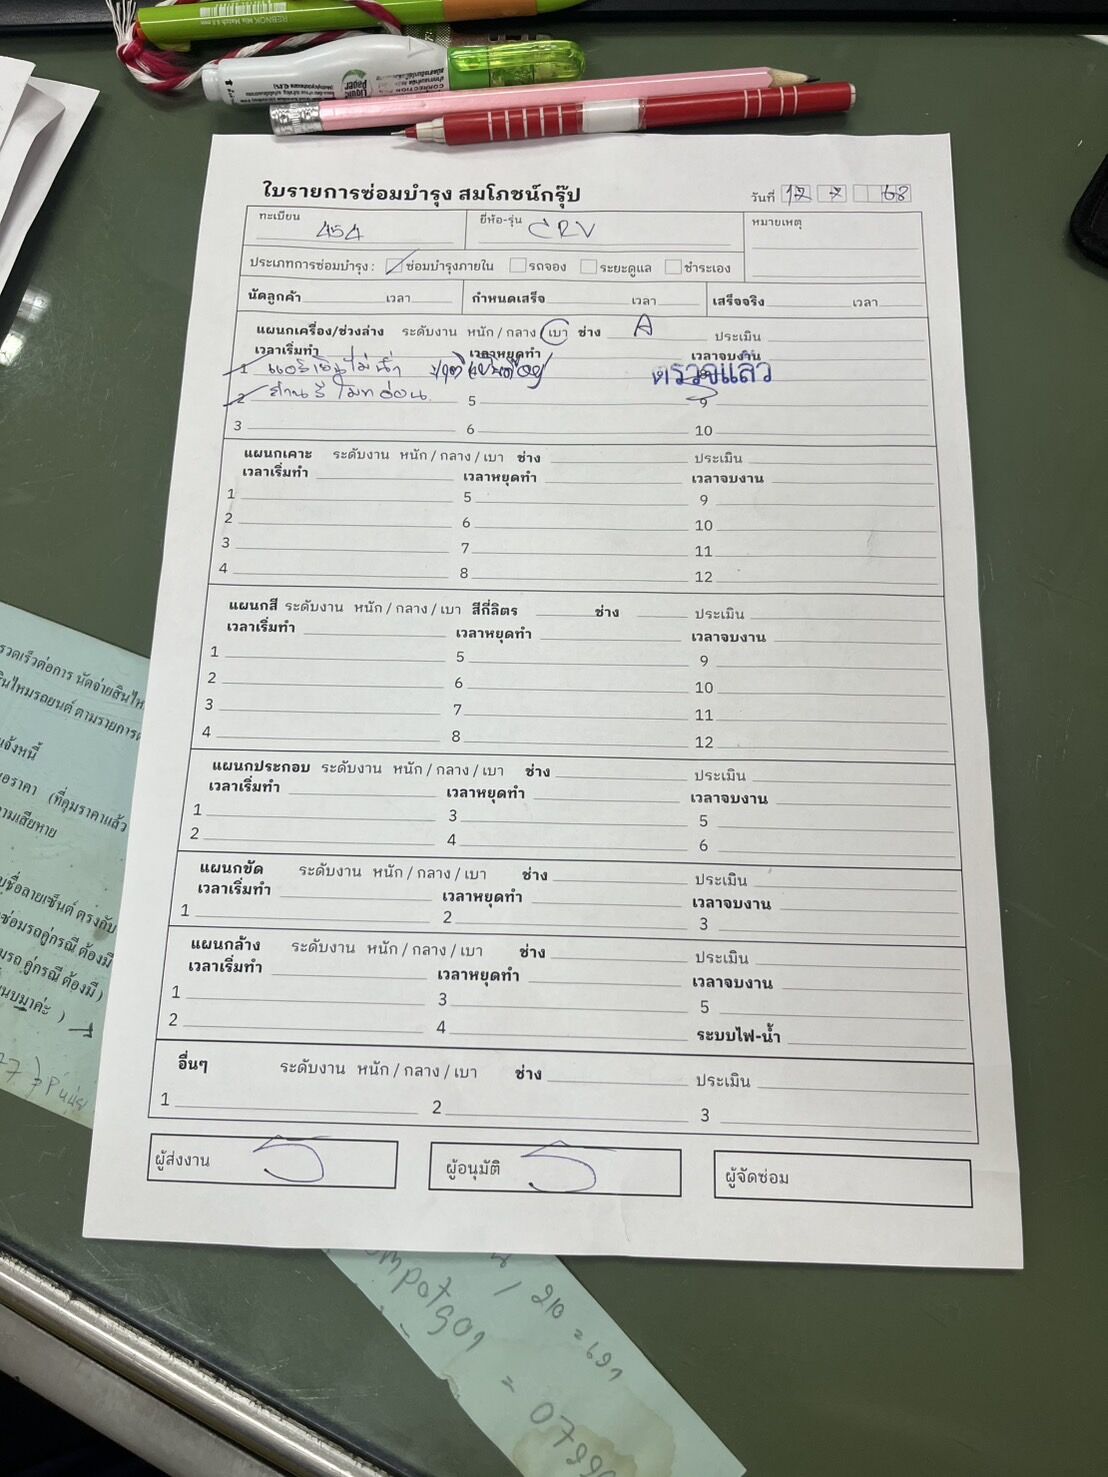 REBNOK
Liquid Paper
ใบรายการซ่อมบำรุง สมโภชน์กรุ๊ป
วันที่ 17 7 68
ทะเบียน 454 ยี่ห้อ-รุ่น CRV หมายเหตุ
ประเภทการซ่อมบำรุง : ซ่อมบำรุงภายใน รถจอง ระยะดูแล ชำระเอง
นัดลูกค้า เวลา กำหนดเสร็จ เวลา เสร็จจริง เวลา
แผนกเครื่อง/ช่วงล่าง ระดับงาน หนัก / กลาง / เบา ช่าง A ประเมิน
เวลาเริ่มทำ เวลาหยุดทำ เวลาจบงาน
1 แอร์เย็นไม่ฉ่ำ ตรวจแล้ว
2 ถ่านรีโมทอ่อน 5 9
3 6 10
แผนกเคาะ ระดับงาน หนัก / กลาง / เบา ช่าง ประเมิน
เวลาเริ่มทำ เวลาหยุดทำ เวลาจบงาน
1 5 9
2 6 10
3 7 11
4 8 12
แผนกสี ระดับงาน หนัก / กลาง / เบา สีกี่ลิตร ช่าง ประเมิน
เวลาเริ่มทำ เวลาหยุดทำ เวลาจบงาน
1 5 9
2 6 10
3 7 11
4 8 12
แผนกประกอบ ระดับงาน หนัก / กลาง / เบา ช่าง ประเมิน
เวลาเริ่มทำ เวลาหยุดทำ เวลาจบงาน
1 3 5
2 4 6
แผนกขัด ระดับงาน หนัก / กลาง / เบา ช่าง ประเมิน
เวลาเริ่มทำ เวลาหยุดทำ เวลาจบงาน
1 2 3
แผนกล้าง ระดับงาน หนัก / กลาง / เบา ช่าง ประเมิน
เวลาเริ่มทำ เวลาหยุดทำ เวลาจบงาน
1 3 5
2 4 ระบบไฟ-น้ำ
อื่นๆ ระดับงาน หนัก / กลาง / เบา ช่าง ประเมิน
1 2 3
ผู้ส่งงาน ผู้อนุมัติ ผู้จัดซ่อม
รวดเร็วต่อการ นัดจ่ายสินไห
สินไหมรถยนต์ ตามรายการ
แจ้งหนี้
อราคา (ที่คุมราคาแล้ว
ามเสียหาย
ชื่อลายเซ็นต์ ตรงกับ
ซ่อมรถคู่กรณี ต้องมี
มรถ คู่กรณี ต้องมี )
นบมาค่ะ )